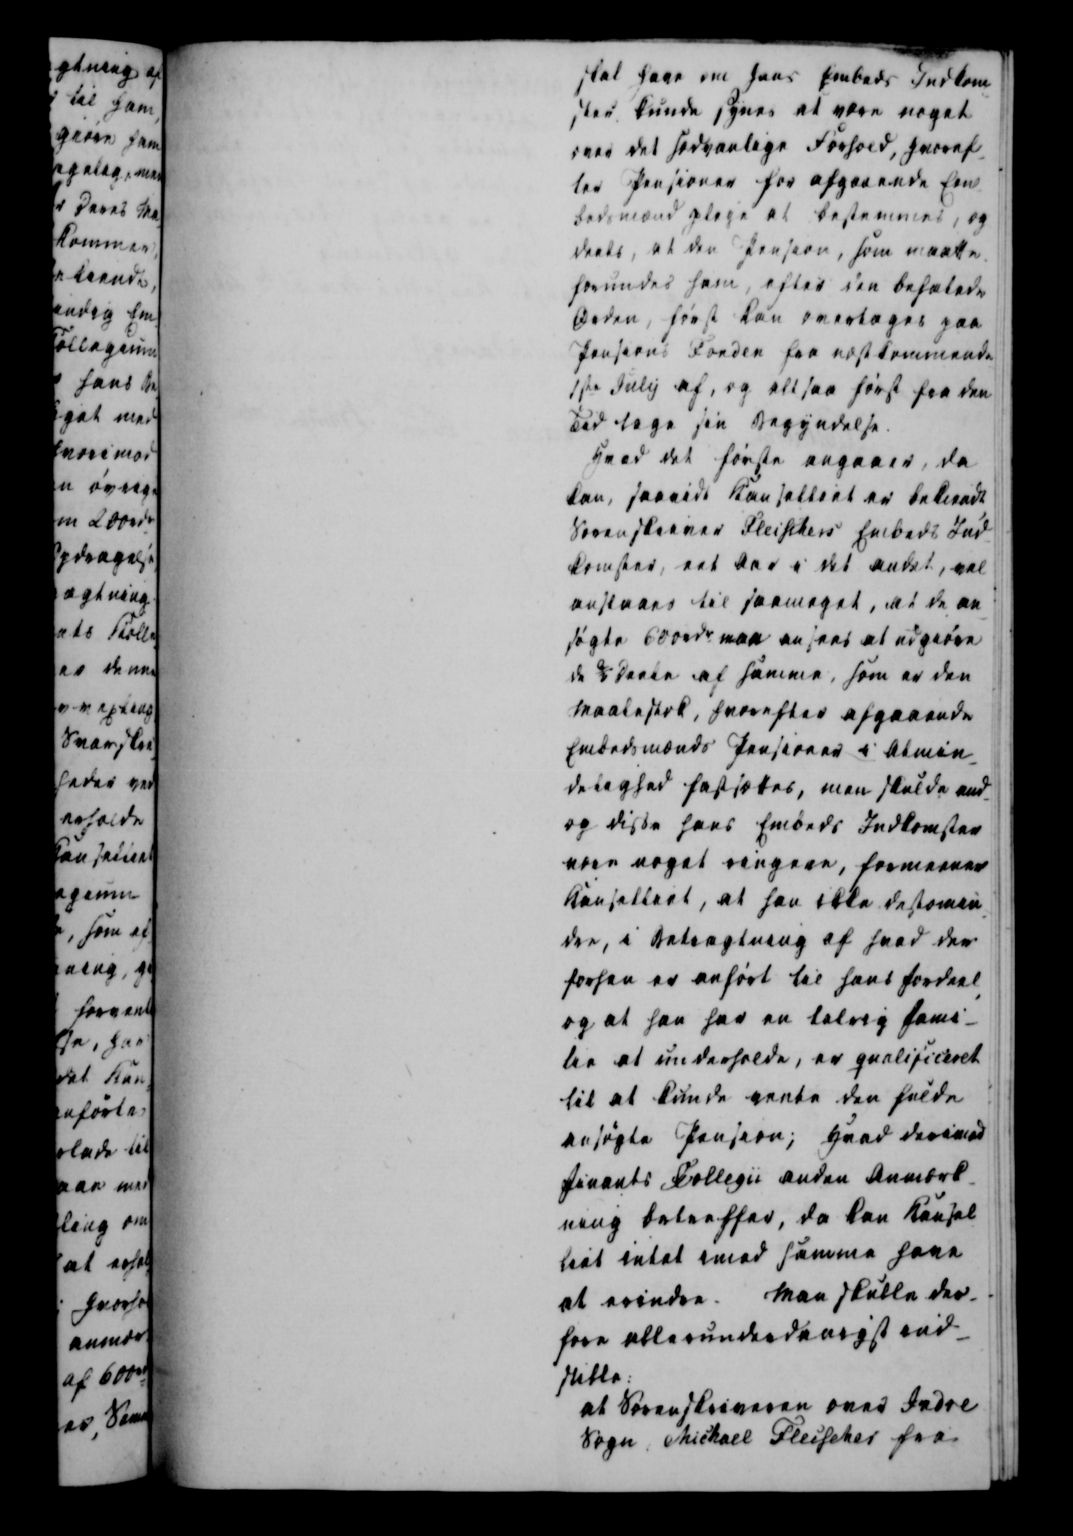 skal have om hans Embeds Indkom-
ster kunde synes at være noget
over det sædvanlige Forhold, hvoref-
ter Pensioner for afgaaende Em-
bedsmænd pleje at bestemmes, og
deels, at den Pension, som maatte
forundes ham, efter den befalede
Orden, først kan overtages paa
Pensions Fonden fra næstkommende
1ste Julij af, og altsaa først fra den
Tid tage sin Begyndelse.
Hvad det første angaaer, da
kan, saavidt Kanselliet er bekiendt
Sorenskriver Fleischers Embeds Ind-
komster, eet Aar i det andet, vel
anslaaes til saameget, at de an-
søgte 600 rdr maa ansees at udgiøre
de 2/3 Deele af samme, som er den
Maalestok, hvorefter afgaaende
Embedsmænds Pensioner i Almin-
delighed fastsættes, men skulde end-
og disse hans Embeds Indkomster
være noget ringere, formeener
Kanselliet, at han ikke destomin-
dre, i Betragtning af hvad der
forhen er anført til hans Fordeel,
og at han har en talrig Fami-
lie at underholde, er qvalificeret
til at kunde vente den fulde
ansøgte Pension; Hvad derimod
Finants Collegii anden Anmærk-
ning betreffer, da kan Kansel-
liet intet imod samme have
at erindre. Man skulle der-
fore allerunderdanigst ind-
stille:
at Sorenskriveren over Indre
Sogn, Michael Fleischer fra